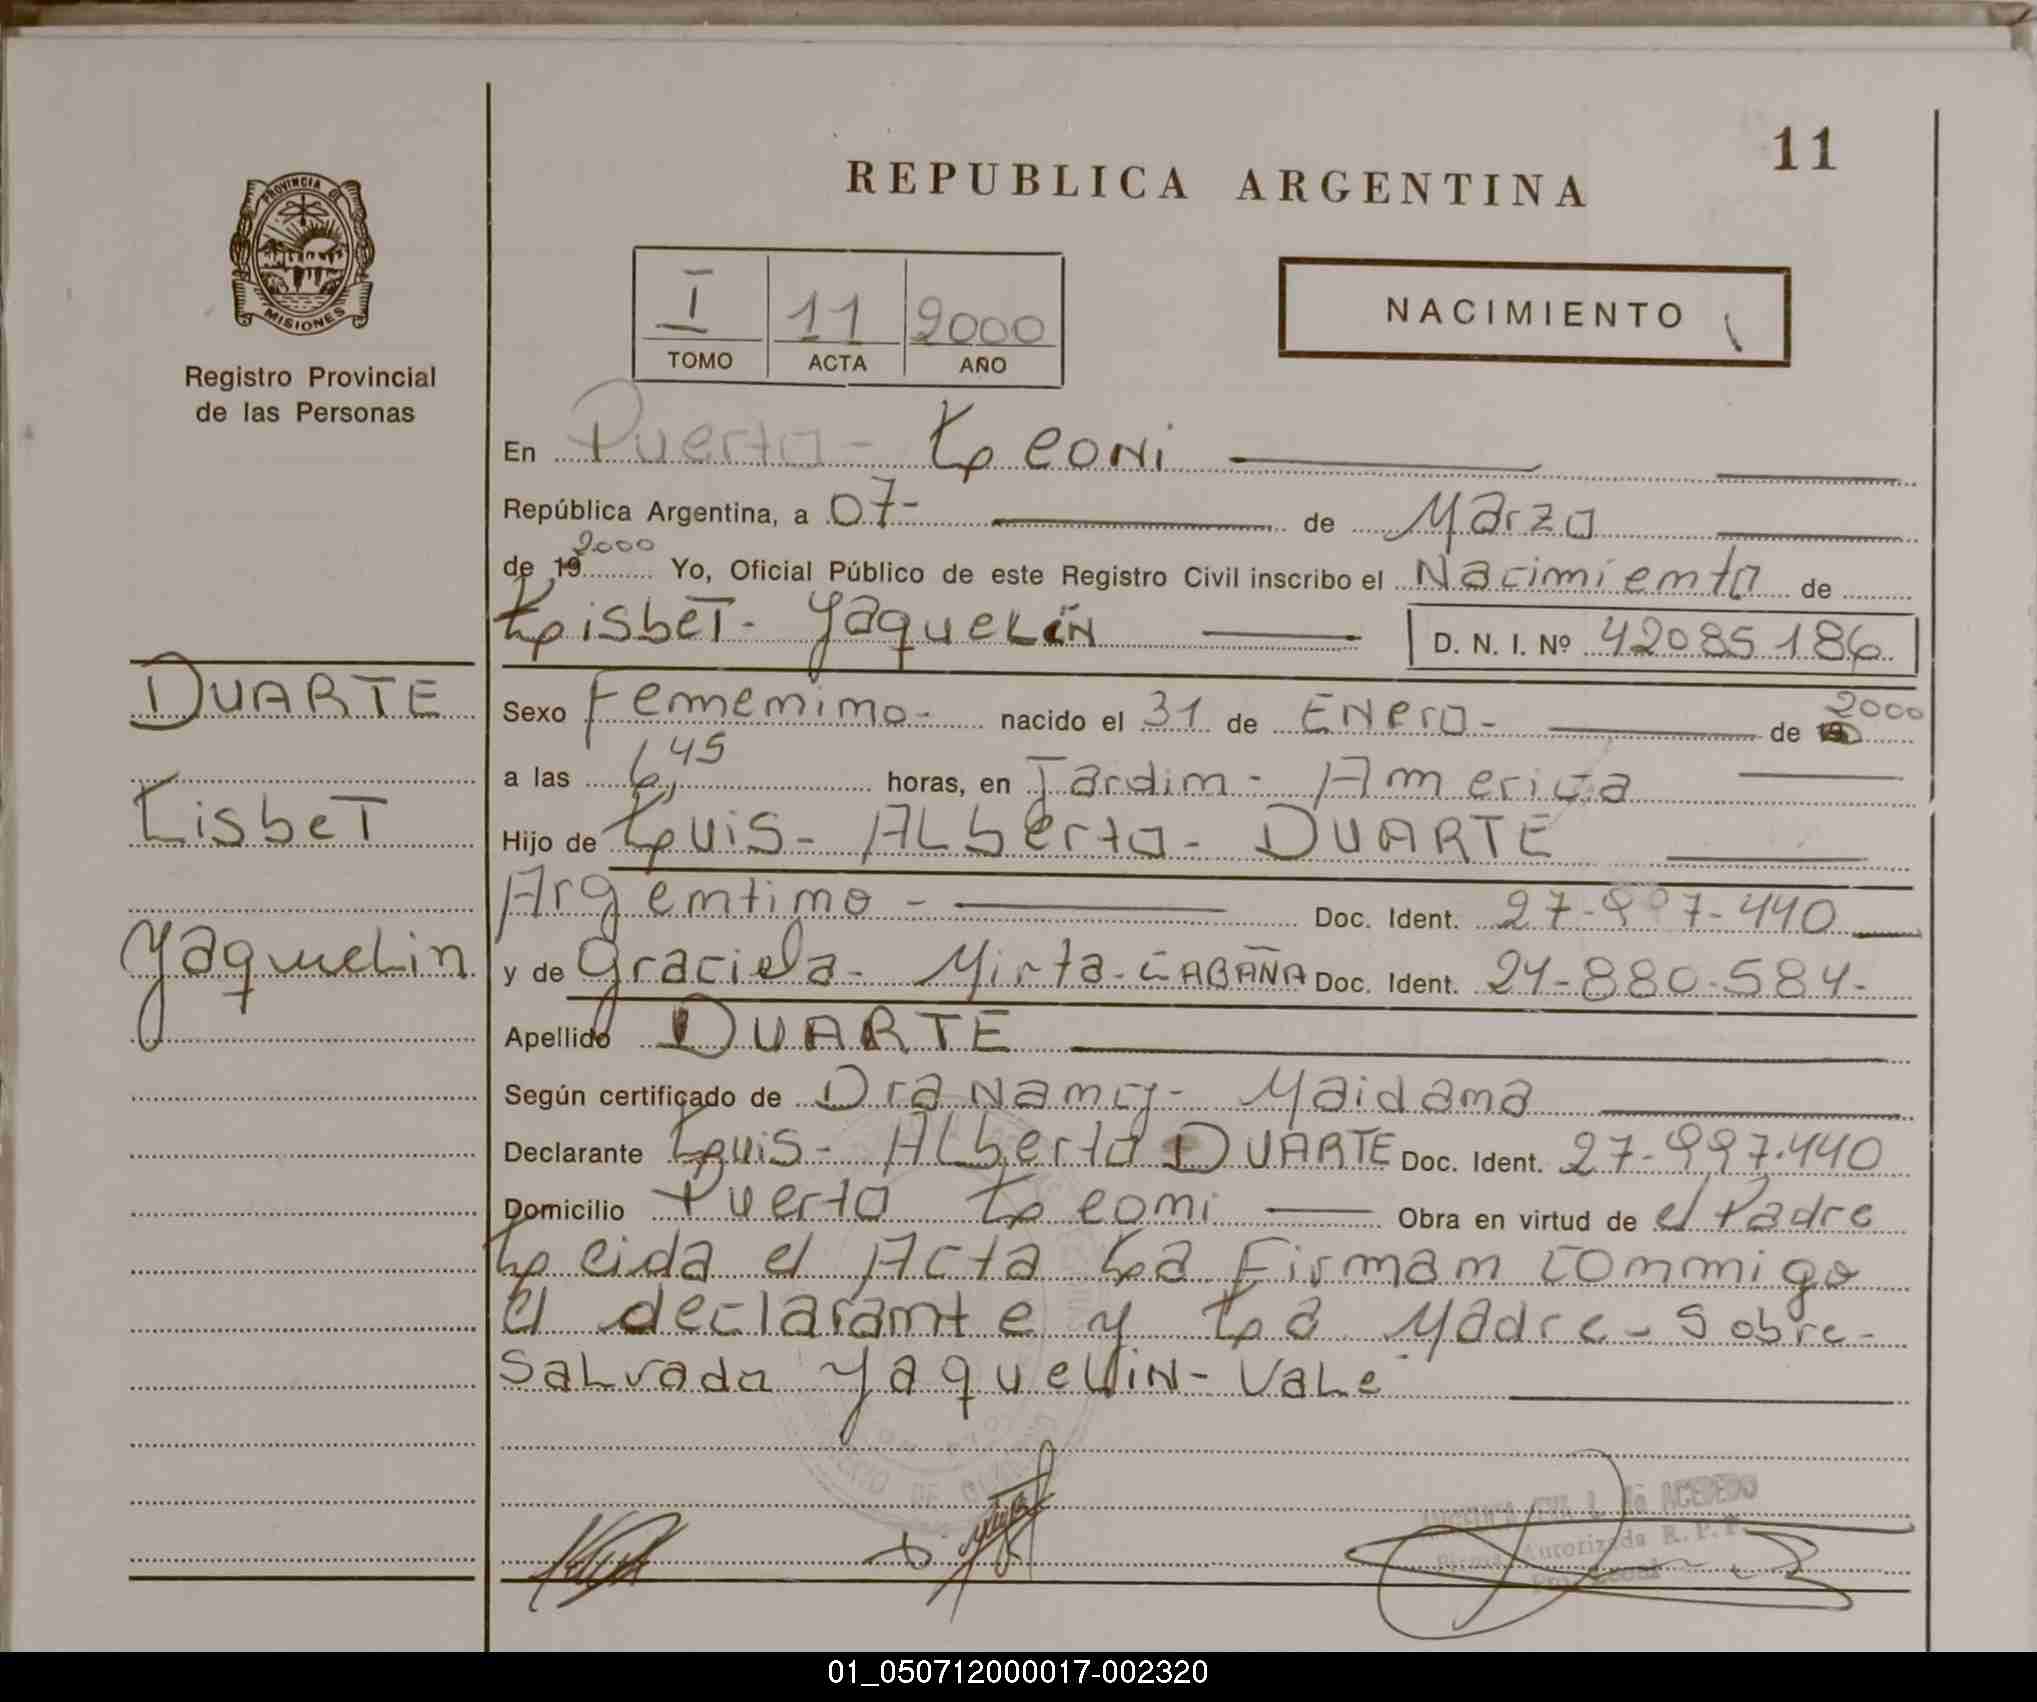 11
REPUBLICA ARGENTINA
PROVINCIA DE
MISIONES
Registro Provincial
de las Personas
I 11 2000
TOMO ACTA AÑO
NACIMIENTO
En Puerto - Leoni
República Argentina, a 07- de Marzo
de 19 2000 Yo, Oficial Público de este Registro Civil inscribo el Nacimiento de
Lisbet - Yaquelin D. N. I. Nº 42085186
DUARTE
Lisbet
Yaquelin
Sexo Femenino - nacido el 31 de Enero - de 2000
a las 6,45 horas, en Jardin - America
Hijo de Luis - Alberto - DUARTE
Argentino - Doc. Ident. 27-997-440
y de Graciela - Mirta - CABAÑA Doc. Ident. 24-880-584-
Apellido DUARTE
Según certificado de Dra Nancy - Maidana
Declarante Luis - Alberto DUARTE Doc. Ident. 27-997.440
Domicilio Puerto Leoni Obra en virtud de el Padre
Leida el Acta La Firman conmigo
el declarante y La Madre - Sobre-
Salvado Yaquelin - Vale
ACEDEDO
Firma Autorizada R. P. P.
01_050712000017-002320